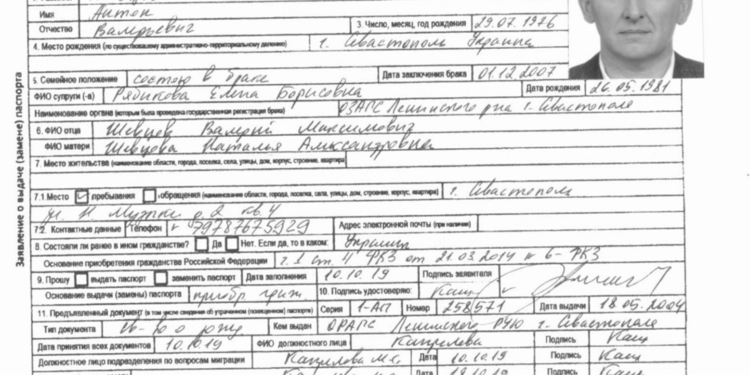 Заявление о выдаче (замене) паспорта
Имя Антон
Отчество Валерьевич 3. Число, месяц, год рождения 29.07.1976
4. Место рождения (по существовавшему административно-территориальному делению) г. Севастополь Украина
5. Семейное положение состою в браке Дата заключения брака 01.12.2007
ФИО супруги (-а) Рябикова Елена Борисовна Дата рождения 26.05.1981
Наименование органа (которым была проведена государственная регистрация брака) ОЗАГС Ленинского р-на г. Севастополе
6. ФИО отца Шевцов Валерий Максимович
ФИО матери Шевцова Наталья Александровна
7. Место жительства (наименование области, города, поселка, села, улицы, дом, строение, корпус, квартира)
7.1 Место пребывания обращения (наименование области, города, поселка, села, улицы, дом, строение, корпус, квартира) г. Севастополь
ул. Н. Музыки д. 2 кв. 4
7.2. Контактные данные Телефон 79787675929 Адрес электронной почты (при наличии)
8. Состояли ли ранее в ином гражданстве? Да Нет. Если да, то в каком: Украины
Основание приобретения гражданства Российской Федерации ч. 1 ст. 4 ФКЗ от 21.03.2014 № 6-ФКЗ
9. Прошу выдать паспорт заменить паспорт Дата заполнения 10.10.19 Подпись заявителя
Основание выдачи (замены) паспорта приобр. граж. 10. Подпись удостоверяю:
11. Предъявленный документ (в том числе сведения об утраченном (похищенном) паспорте) Серия 1-АП Номер 258571 Дата выдачи 18.05.2004
Тип документа Кем выдан Ленинского г. Севастополе
Дата принятия всех документов 10.10.19 ФИО должностного лица Подпись
Должностное лицо подразделения по вопросам миграции Дата 10.10.19 Подпись
Дата Подпись